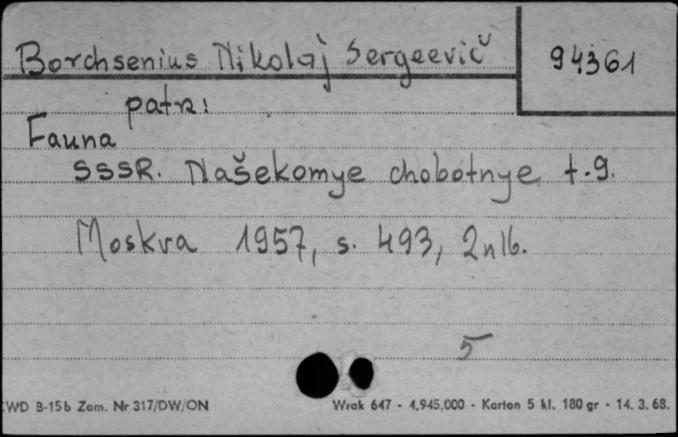 Borchsenius Nikolaj Sergeevič
94361
patrz:
Fauna
SSSR. Našekomye chobotnye t.9.
Moskva 1957, s. 493, 2nlb.
5
CWD B-15b Zam. Nr 317/DW/ON
Wrak 647 - 4.945.000 - Karton 5 kl. 180 gr - 14. 3. 68.